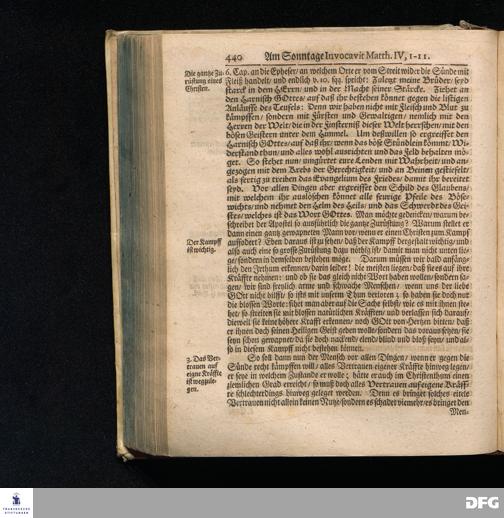 440 Am Sonntage Invocavit Matth. IV, 1-11.
Die gantze Zu-
rüstung eines
Christen.
6. Cap. an die Epheser/ an welchem Orte er vom Streit wider die Sünde mit
Fleiß handelt/ und endlich v. 10. sqq. spricht: Zuletzt meine Brüder/ seyd
starck in dem HErrn/ und in der Macht seiner Stärcke. Ziehet an
den Harnisch GOttes/ auf daß ihr bestehen könnet gegen die listigen
Anläuffe des Teufels: Denn wir haben nicht mit Fleisch und Blut zu
kämpffen/ sondern mit Fürsten und Gewaltigen/ nemlich mit den
Herren der Welt/ die in der Finsterniß dieser Welt herrschen/ mit den
bösen Geistern unter dem Himmel. Um deßwillen so ergreiffet den
Harnisch GOttes/ auf daß ihr/ wenn das böse Stündlein kömmt/ Wi-
derstand thun/ und alles wohl ausrichten und das Feld behalten mö-
get. So stehet nun/ umgürtet eure Lenden mit Wahrheit/ und an-
gezogen mit dem Krebs der Gerechtigkeit/ und an Beinen gestiefelt/
als fertig zu treiben das Evangelium des Friedes/ damit ihr bereitet
seyd. Vor allen Dingen aber ergreiffet den Schild des Glaubens/
mit welchem ihr auslöschen könnet alle feurige Pfeile des Böse-
wichts/ und nehmet den Helm des Heils/ und das Schwerdt des Gei-
stes/ welches ist das Wort GOttes. Man möchte gedencken/ warum be-
schreibet der Apostel so ausführlich die gantze Zurüstung? Warum stellet er
dann einen gantz gewapneten Mann vor/ wenn er einen Christen zum Kampf
Der Kampff
ist wichtig.
auffodert? Eben daraus ist zu sehen/ daß der Kampff dergestalt wichtig/ und
also auch eine so grosse Zurüstung dazu nöthig ist/ damit man nicht unten lie-
ge/ sondern in demselben bestehen möge. Darum müssen wir bald anfäng-
lich den Irthum erkennen/ darin leider! die meisten liegen/ daß sie es auf ihre
Kräffte nehmen: und ob sie das gleich nicht Wort haben wollen/ sondern sa-
gen/ wir sind freylich arme und schwache Menschen/ wenn uns der liebe
GOtt nicht hilfft/ so ists mit unserm Thun verloren; so haben sie doch nur
die blossen Worte: sihet man aber auf die Sache selbst/ wie es mit ihnen ste-
het/ so streiten sie mit blossen natürlichen Kräfften/ und verlassen sich darauf/
dieweil sie keine höhere Krafft erkennen/ noch GOtt von Hertzen bitten/ daß
er ihnen doch seinen Heiligen Geist geben wolle/ sondern das voraus setzen/ sie
seyn schon gewapnet/ da sie doch nackend/ elend/ blind und bloß seyn/ und al-
so in diesem Kampff nicht bestehen können.
2. Das Ver-
trauen auf
eigne Kräffte
ist wegzule-
gen.
So soll dann nun der Mensch vor allen Dingen/ wenn er gegen die
Sünde recht kämpffen will/ alles Vertrauen eigener Kräffte hinweg legen/
er sey in welchem Zustande er wolle; hätte er auch im Christenthum einen
ziemlichen Grad erreicht/ so muß doch alles Vertrauen auf eigene Kräff-
te schlechterdings hinweg geleget werden. Denn es bringet solches eitele
Vertrauen nicht allein keinen Nutz/ sondern es schadet vielmehr/ es bringet den
Men-
FRANCKESCHE
STIFTUNGEN
DFG